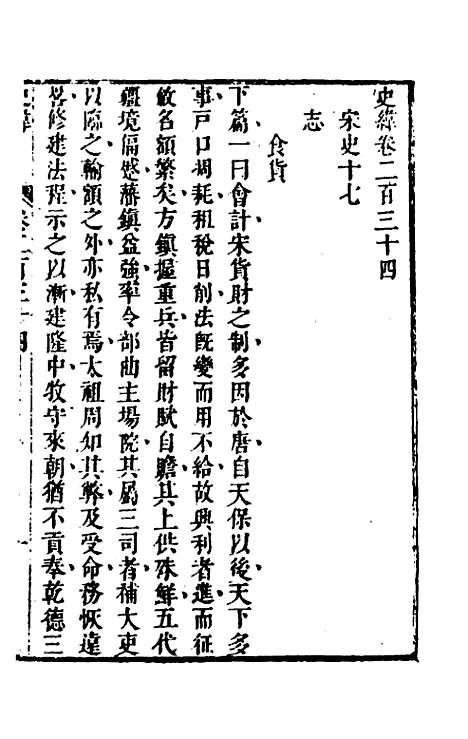 史緯卷二百三十四
宋史十七
志
食貨
下篇一曰會計宋貨財之制多因於唐自天保以後天下多
事戸口凋耗租稅日削法旣變而用不給故興利者進而征
斂名額繁矣方鎮握重兵皆留財賦自贍其上供殊鮮五代
疆境偪蹙藩鎮益強率令部曲主場院其屬三司者補大吏
以臨之輸額之外亦私有焉太祖周知其弊及受命務恢遠
畧修建法程示之以漸建隆中牧守來朝猶不貢奉乾德三
卷二百三十四